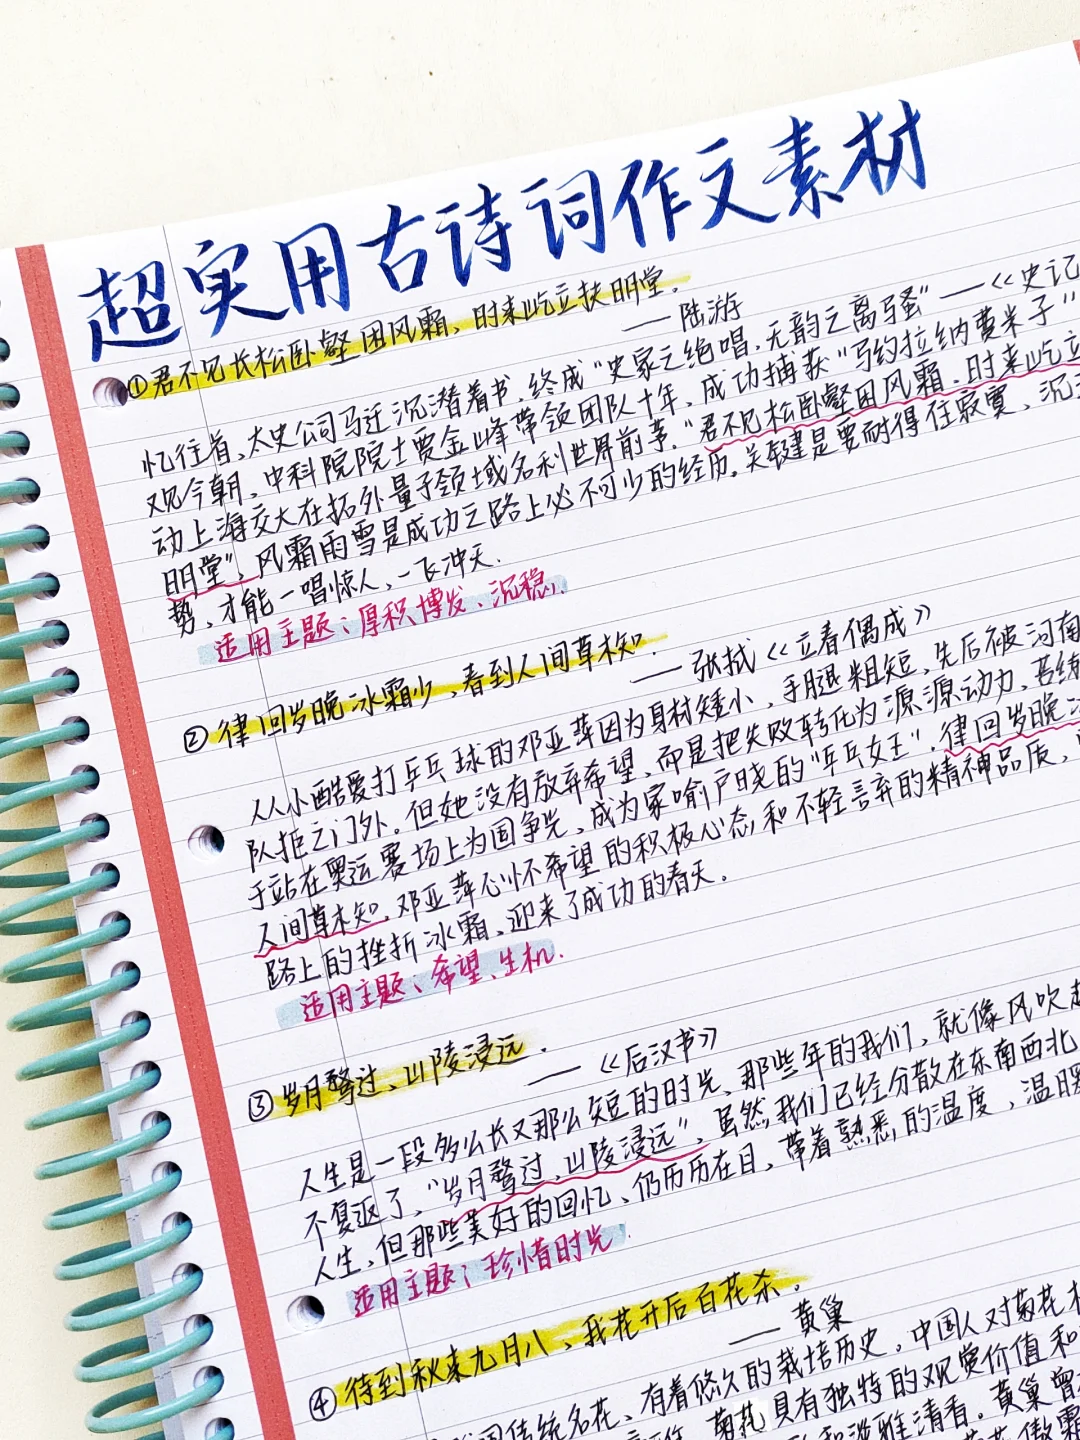 超实用古诗词作文素材
①君不见长松卧壑困风霜、时来屹立扶明堂。
——陆游
忆往昔、太史公司马迁沉潜着书、终成“史家之绝唱、无韵之离骚”—《史记
观今朝、中科院院士贾金峰带领团队十年、成功捕获“马约拉纳费米子”
动上海交大在拓外量子领域名利世界前茅。“君不见松卧壑困风霜、时来屹立
明堂”、风霜雨雪是成功之路上必不可少的经历。关键是要耐得住寂寞、沉
势、才能一唱惊人、一飞冲天.
适用主题：厚积博发、沉稳.
②律回岁晚冰霜少、春到人间草木知.
——张栻《立春偶成》
从小酷爱打乒乓球的邓亚萍因为身材矮小、手腿粗短、先后被河南
队拒之门外。但她没有放弃希望、而是把失败转化为源源动力、苦练
于站在奥运赛场上为国争光、成为家喻户晓的“乒乓女王”.律回岁晚冰
人间草木知、邓亚萍心怀希望的积极心态和不轻言弃的精神品质，
路上的挫折冰霜、迎来了成功的春天.
适用主题：希望、生机.
③岁月骛过、山陵浸远.
——《后汉书》
人生是一段多么长又那么短的时光、那些年的我们、就像风吹
不复返了、“岁月骛过、山陵浸远”、虽然我们已经分散在东南西北
人生、但那些美好的回忆、仍历历在目、带着熟悉的温度、温暖
适用主题：珍惜时光.
④待到秋来九月八、我花开后百花杀.
——黄巢
国传统名花、有着悠久的栽培历史，中国人对菊花
菊花具有独特的观赏价值和
和淡雅清香。黄巢曾
花傲霜